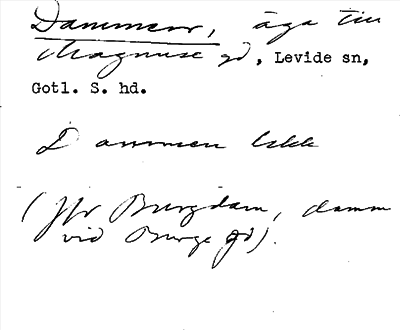 Dammen, äga till
Magnuse gd, Levide sn,
Gotl. S. hd.
Dammen
(Jfr Burgdam, damm
vid Burge gd).